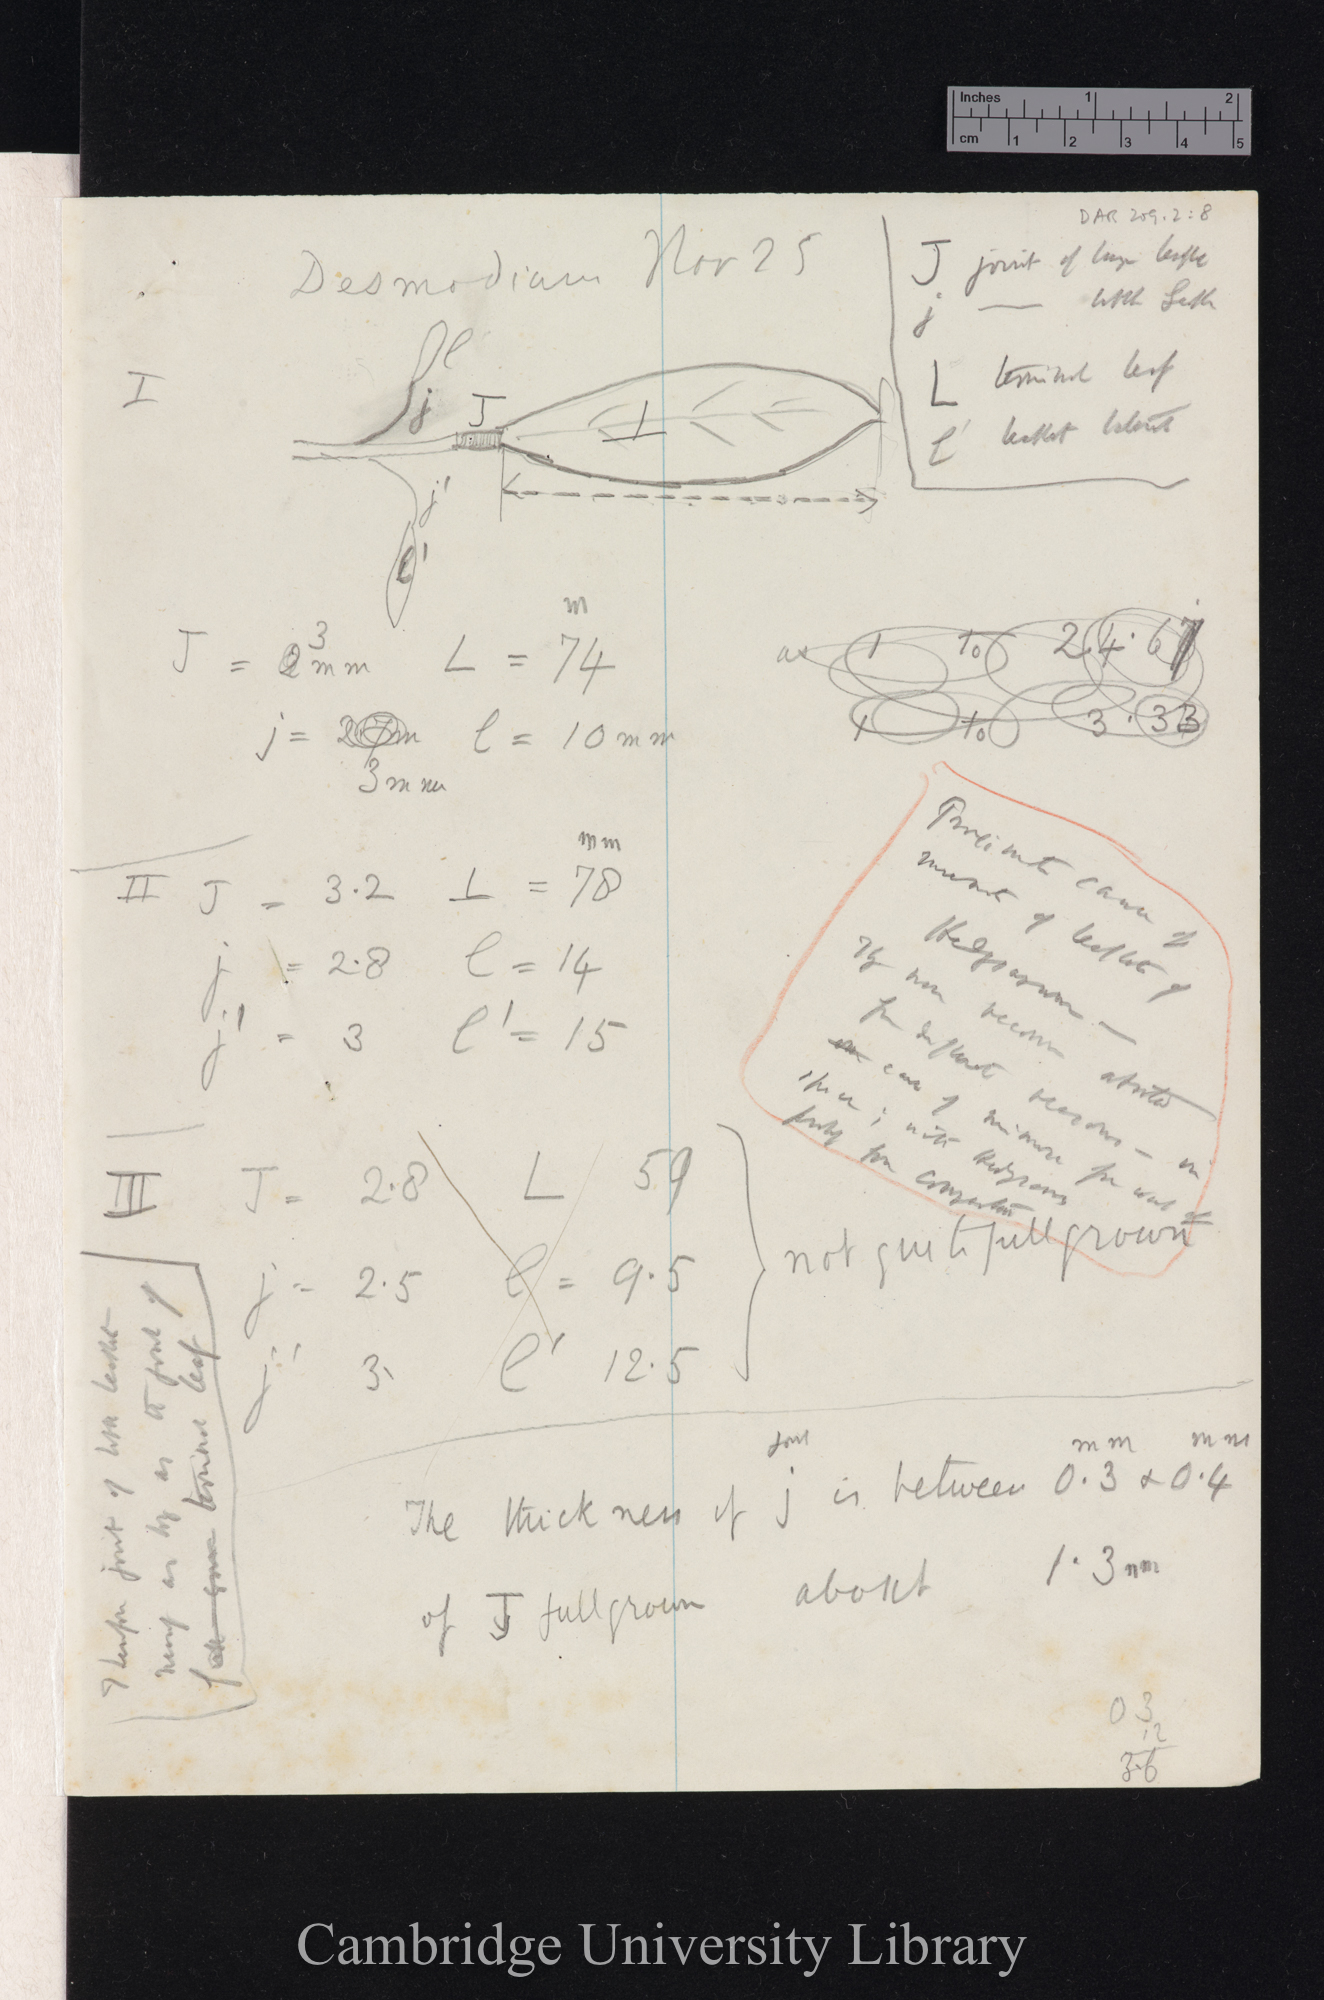 Inches 1 2
cm 1 2 3 4 5
DAR 209.2:8
Desmodium Nov 25
J joint of large leaflet
j — little
L terminal leaf
l' leaflet lateral
I
l
j J L
j'
l'
m
J = 3 mm L = 74
j = 3 mm l = 10 mm
as 1 to 24.67
1 to 3.33
mm
II J = 3.2 L = 78
j = 2.8 l = 14
j' = 3 l' = 15
Proximate cause of
movement of leaflet of
Hedysarum —
Why never become aborted
for different reasons — in
case of mimosa for want of
space; with Hedysarum
partly for
III J = 2.8 L 59
j = 2.5 l = 9.5
j' 3. l' 12.5
not quite full grown
Therefore joint of little leaflet
nearly as long as the joint of
terminal leaf
joint mm mm
The thickness of j is between 0.3 & 0.4
of J full grown about 1.3 mm
03
12
3.6
Cambridge University Library